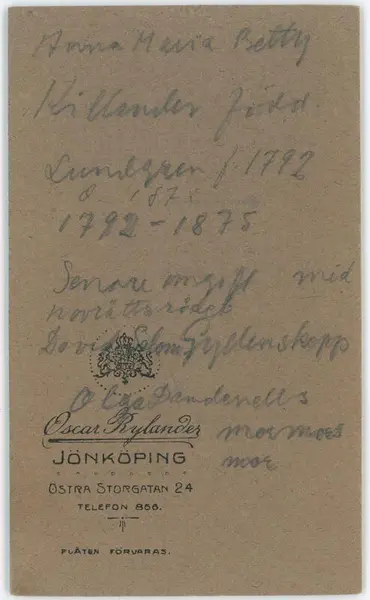 Anna Maria Betty
Killander född
Lundgren f. 1792
d. 1875
1792-1875
Senare omgift med
hovrättsrådet
David Gyllenskepp
Olga Dandenells
mormors
mor
Oscar Rylander
JÖNKÖPING
ÖSTRA STORGATAN 24
TELEFON 866.
PLÅTEN FÖRVARAS.